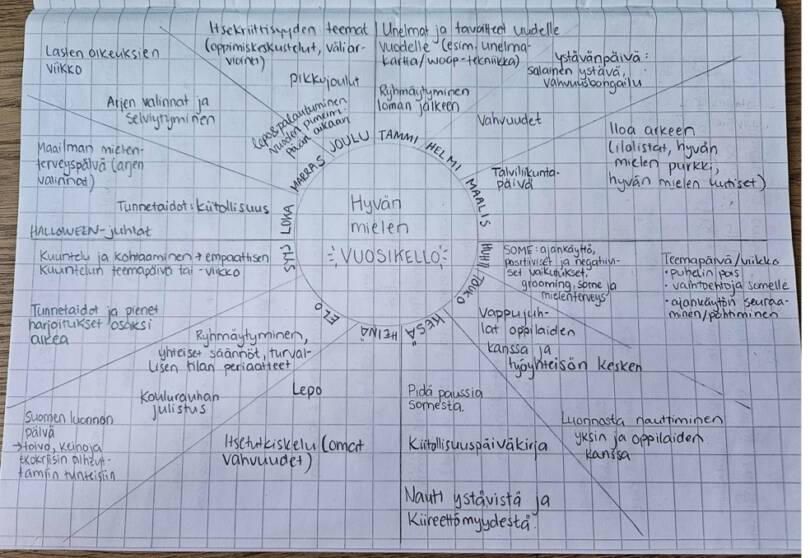 Hyvän
mielen
VUOSIKELLO
TAMMI
HELMI
MAALIS
HUHTI
TOUKO
KESÄ
HEINÄ
ELO
SYYS
LOKA
MARRAS
JOULU
Unelmat ja tavoitteet uudelle
vuodelle (esim. unelma-
kartta/woop-tekniikka)
Ryhmäytyminen
loman jälkeen
ystävänpäivä:
salainen ystävä,
vahvuusbongailu
Vahvuudet
Iloa arkeen
(ilolistat, hyvän
mielen purkki,
hyvän mielen uutiset)
Talviliikunta-
päivä
SOME: ajankäyttö,
positiiviset ja negatiivi-
set vaikutukset,
grooming, some ja
mielenterveys
Teemapäivä/viikko
• puhelin pois
• vaihtoehtoja somelle
• ajankäytön seuraa-
minen/pohtiminen
Vappujuh-
lat oppilaiden
kanssa ja
työyhteisön kesken
Luonnosta nauttiminen
yksin ja oppilaiden
kanssa
Pidä paussia
somesta.
Kiitollisuuspäiväkirja
Nauti ystävistä ja
kiireettömyydestä.
Lepo
Itsetutkiskelu (omat
vahvuudet)
Ryhmäytyminen,
yhteiset säännöt, turval-
lisen tilan periaatteet
Koulurauhan
julistus
Suomen luonnon
päivä
→ toivo, keinoja
ekokriisin aiheut-
tamiin tunteisiin
Kuuntelu ja kohtaaminen → empaattisen
kuuntelun teemapäivä tai -viikko
Tunnetaidot ja pienet
harjoitukset osaksi
arkea
Maailman mielen-
terveyspäivä (arjen
valinnat)
Tunnetaidot: kiitollisuus
HALLOWEEN-juhlat
Lasten oikeuksien
viikko
Arjen valinnat ja
selviytyminen
Itsekriittisyyden teemat
(oppimiskeskustelut, väliar-
vioinnit)
Pikkujoulut
Lepo & palautuminen
vuoden pimeim-
pään aikaan